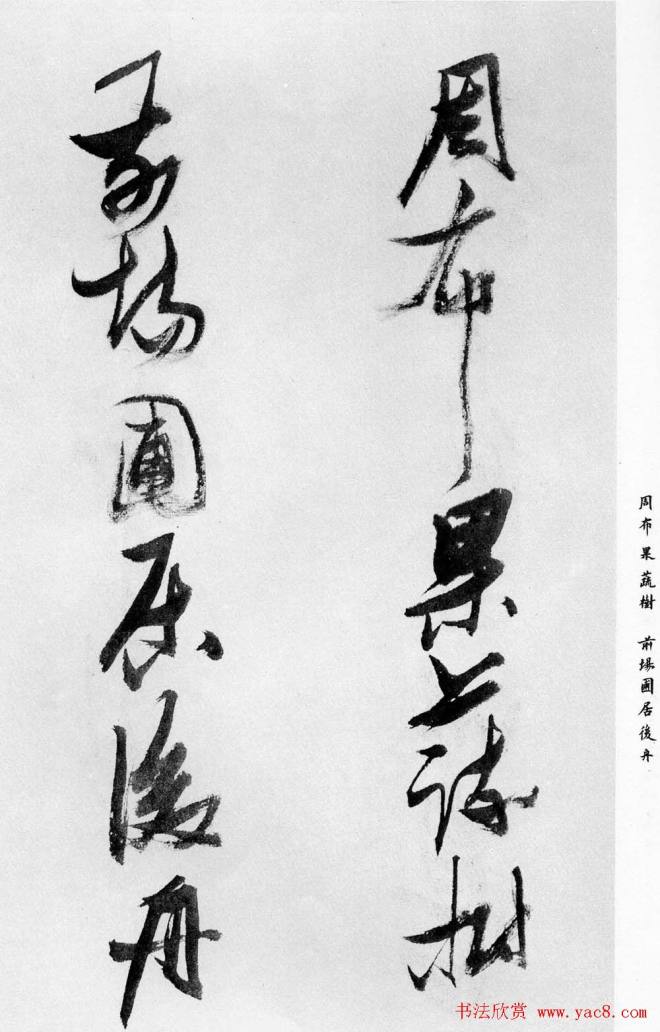 周布果蔬樹　前場圃居後舟
周布果蔬樹
前場圃居後舟
书法欣赏 www.yac8.com